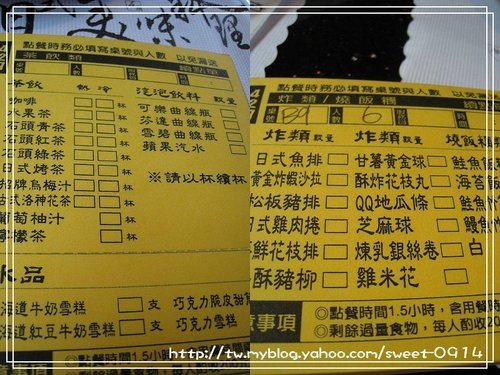 美味料理
點餐時務必填寫桌號與人數　以免漏送
茶飲類
桌號
人數
續點單
茶飲 熱 冷
咖啡 杯
水果茶 杯
石頭青茶 杯
石頭紅茶 杯
石頭綠茶 杯
日式烤茶 杯
招牌烏梅汁 杯
古式洛神花茶 杯
葡萄柚汁
檸檬茶
汽泡飲料 數量
可樂曲線瓶
芬達曲線瓶
雪碧曲線瓶
蘋果汽水
※請以杯續杯
冰品
海道牛奶雪糕 支 巧克力脆皮甜筒
海道紅豆牛奶雪糕 支 巧克力雪糕
意事項
點餐時間1.5小時
點餐時務必填寫桌號與人數　以免漏
炸類/燒飯糰
桌號 B9 人數 6 續點單
炸類 數量
日式魚排
黃金炸蝦沙拉
松板豬排
日式雞肉捲
鮮花枝排
酥豬柳
炸類 數量
甘薯黃金球
酥炸花枝丸
QQ地瓜條
芝麻球
煉乳銀絲卷
雞米花
燒飯糰類
鮭魚飯
海苔
鮭魚竹
鰻魚竹
白
意事項
◎點餐時間1.5小時，含用餐時
◎剩餘過量食物，每人酌收20
http://tw.myblog.yahoo.com/sweet-0914